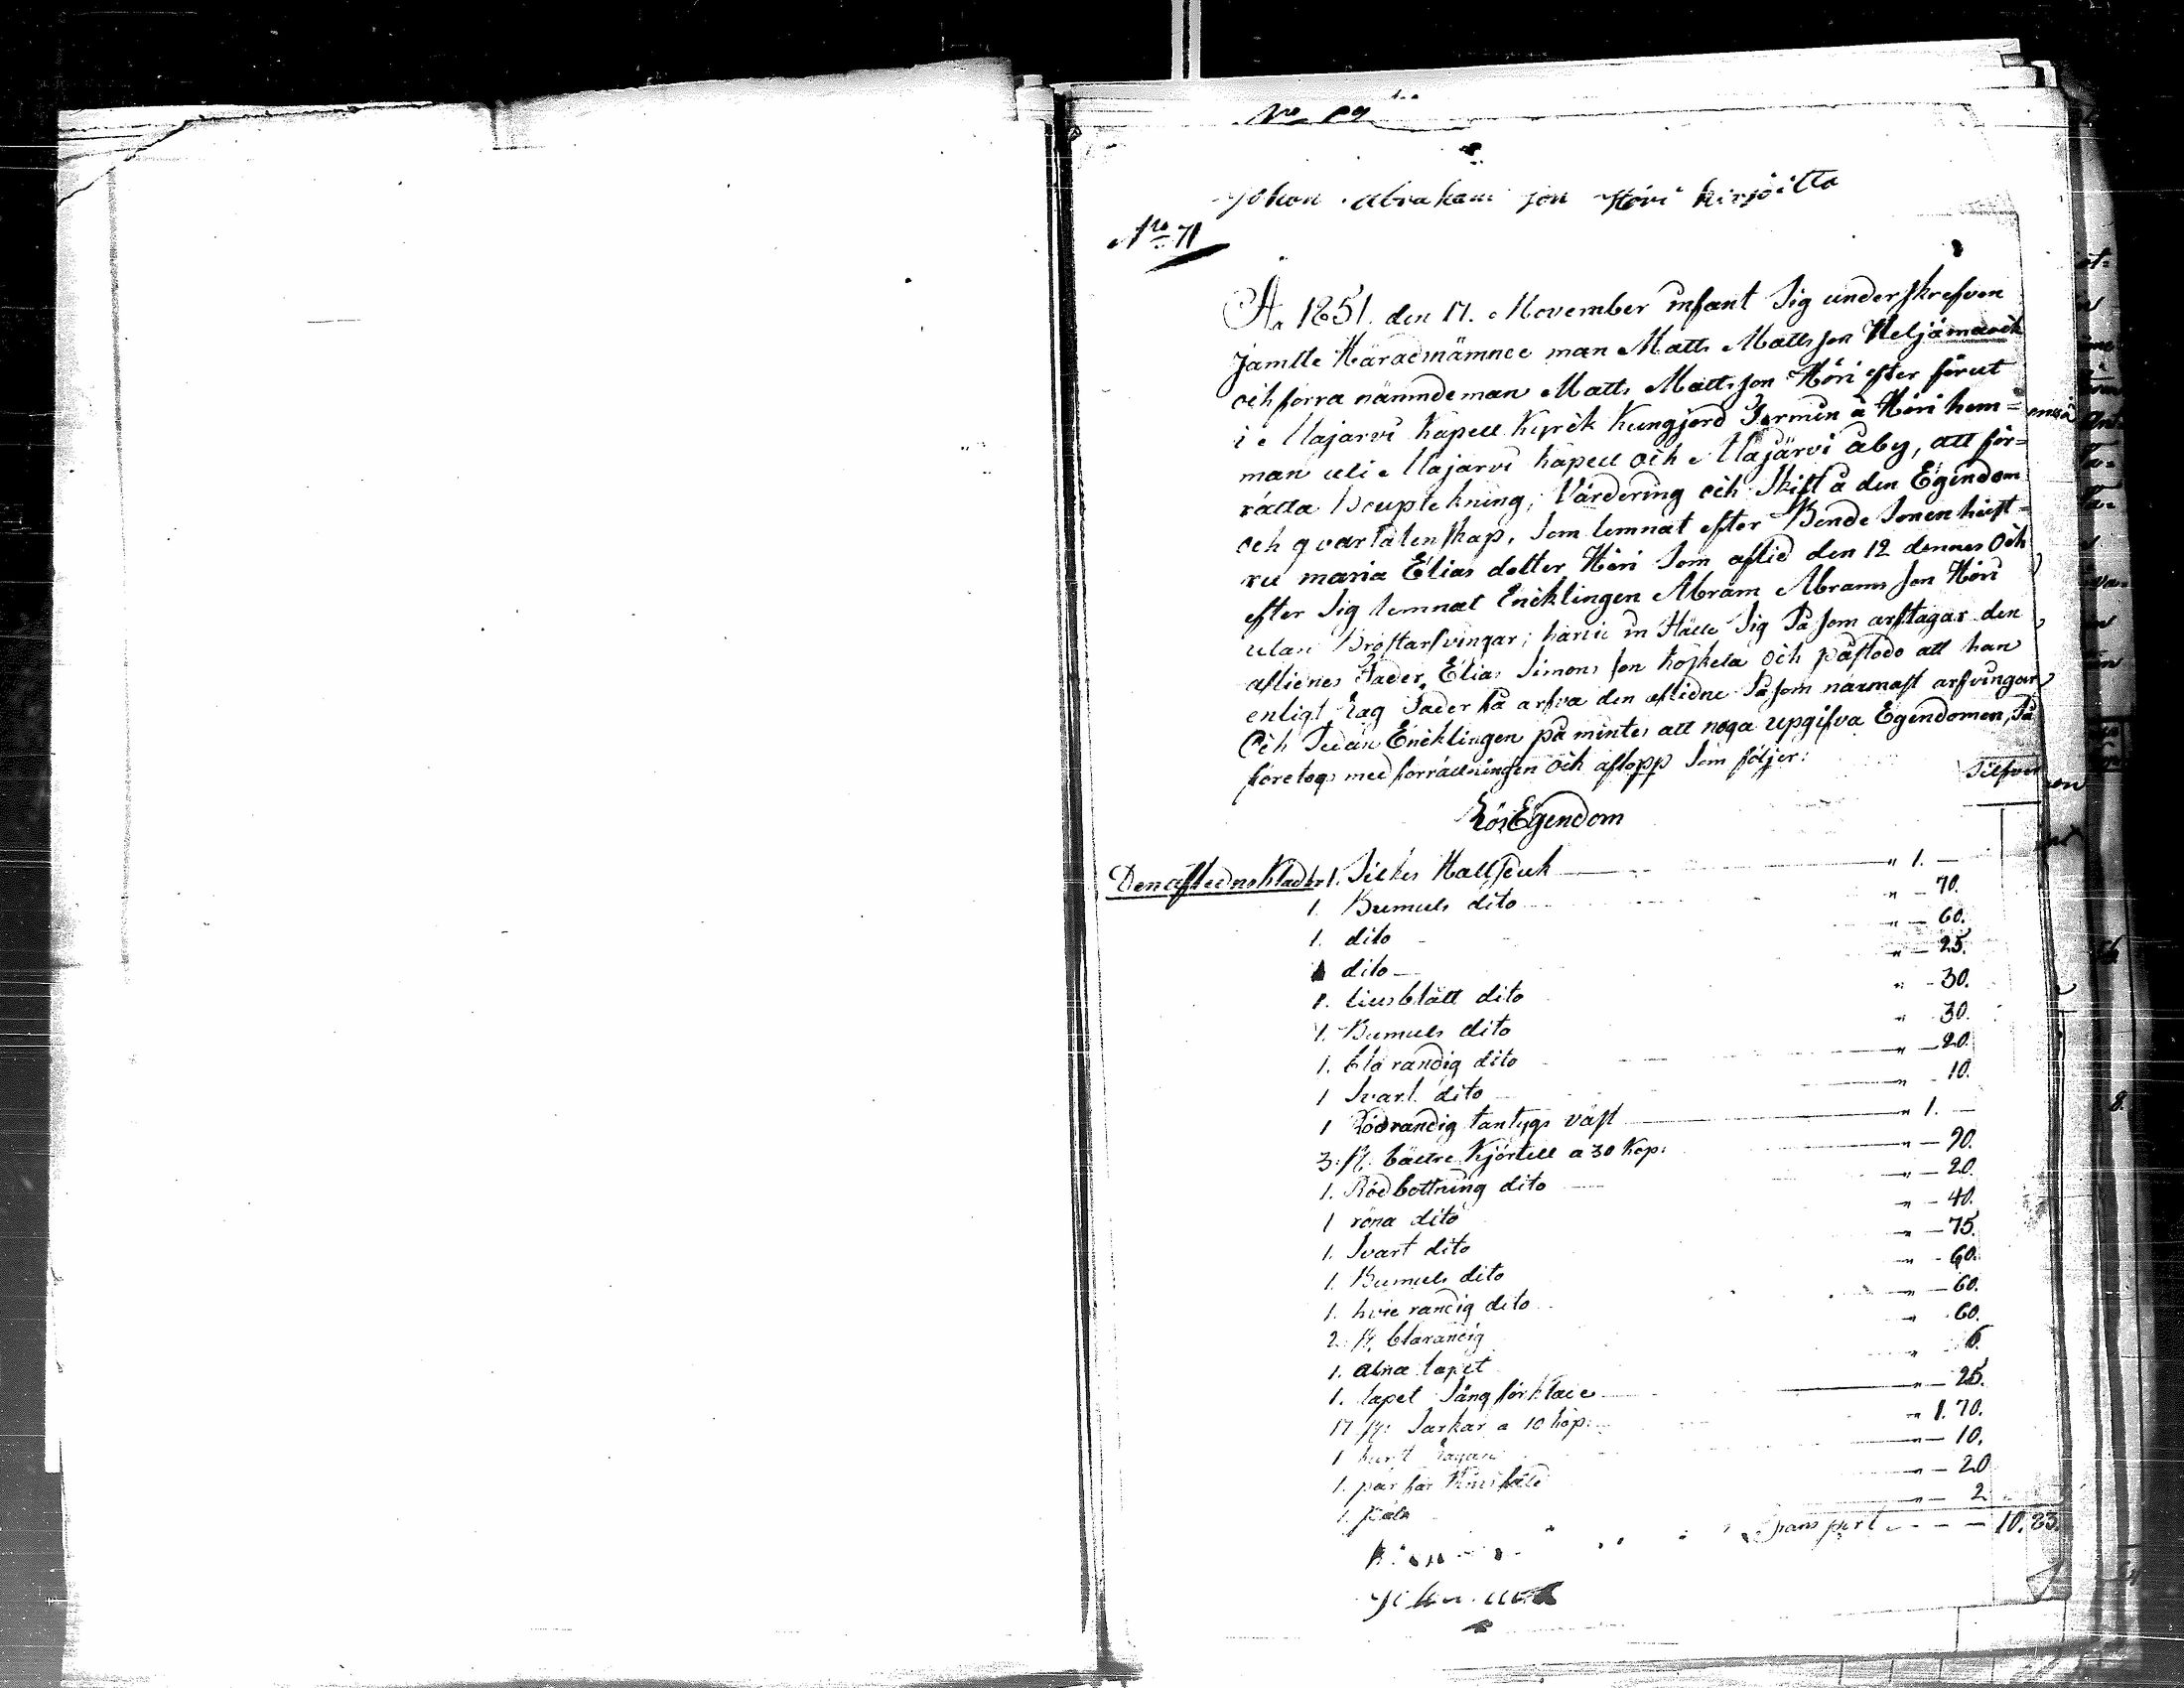 Johan Abraham son Höri kirjoitta
No 71
År 1851. den 17. November infant Sig underskrefven
jämtte Häradsnämnde man Matts Mattsson Neljämarck
och forra nämndeman Matts Mattsson Höri efter förut
i Alajarvi Kapell Kyrck Kungjord Termin å Höri hem=
man uti Alajarvi kapell och Alajärvi aby, att för=
rätta Boupteckning, Värdering och Skift å den Egendom
och qvarlåtenskap, Som lemnat efter Bonde Sonen hust=
ru maria Elias dotter Höri Som aflid den 12 dennes Och
efter Sig lemnat Encklingen Abram Abrams Son Höri
utan Bröstarfvingar; härvid in Stälte Sig Så Som arftagar den
aflidnes Fader, Elias Simons Son Koskela och påstod att han
enligt Lag Fader få arfva den aflidne Så Som närmast arfvingar,
Och Sedan Encklingen på mintes att noga upgifva Egendomen, Så
företogs med förrättningen Och aflopp Som följer:
Silfver
Lös Egendom
Den aflidnes Kläder 1. Silkes Hallsduk " 1. —
1. Bumuls dito " — 70.
1. dito " — 60.
1 dito — " — 25.
1. liusblått dito " — 30.
1. Bumuls dito " 30.
1. blå randig dito " — 20.
1 Svart dito " 10.
1 Rödrandig tantygs väst " 1. —
3. st. bättre Kjörtell a 30 Kop: " — 90.
1. Rödbottning dito " — 20.
1 röna dito " — 40.
1. Svart dito " — 75.
1. Bumuls dito " — 60.
1. hvit randig dito " — 60.
2. st. blårandig " 60.
1. alna tapet " 6.
1. tapet Säng förkläde " — 25.
17 st: Särkar a 10 kop: " 1. 70.
1 " — 10.
1. par " — 20
1. " — 2
Transport — — — 10. 83.